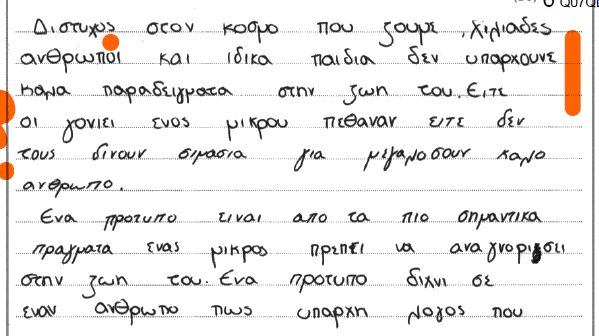 Διστυχος στον κοσμο που ζουμε, χιλιαδες
ανθρωποι και ιδικα παιδια δεν υπαρχουνε
καλα παραδειγματα στην ζωη του. Ειτε
οι γονιει ενος μικρου πεθαναν ειτε δεν
τους δινουν σιμασια για μεγαλοσουν καλο
ανθρωπο.
Ενα προτυπο ειναι απο τα πιο σημαντικα
πραγματα ενας μικρος πρεπει να αναγνορισει
στην ζωη του. Ενα προτυπο διχνι σε
εναν ανθρωπο πως υπαρχη λογος που